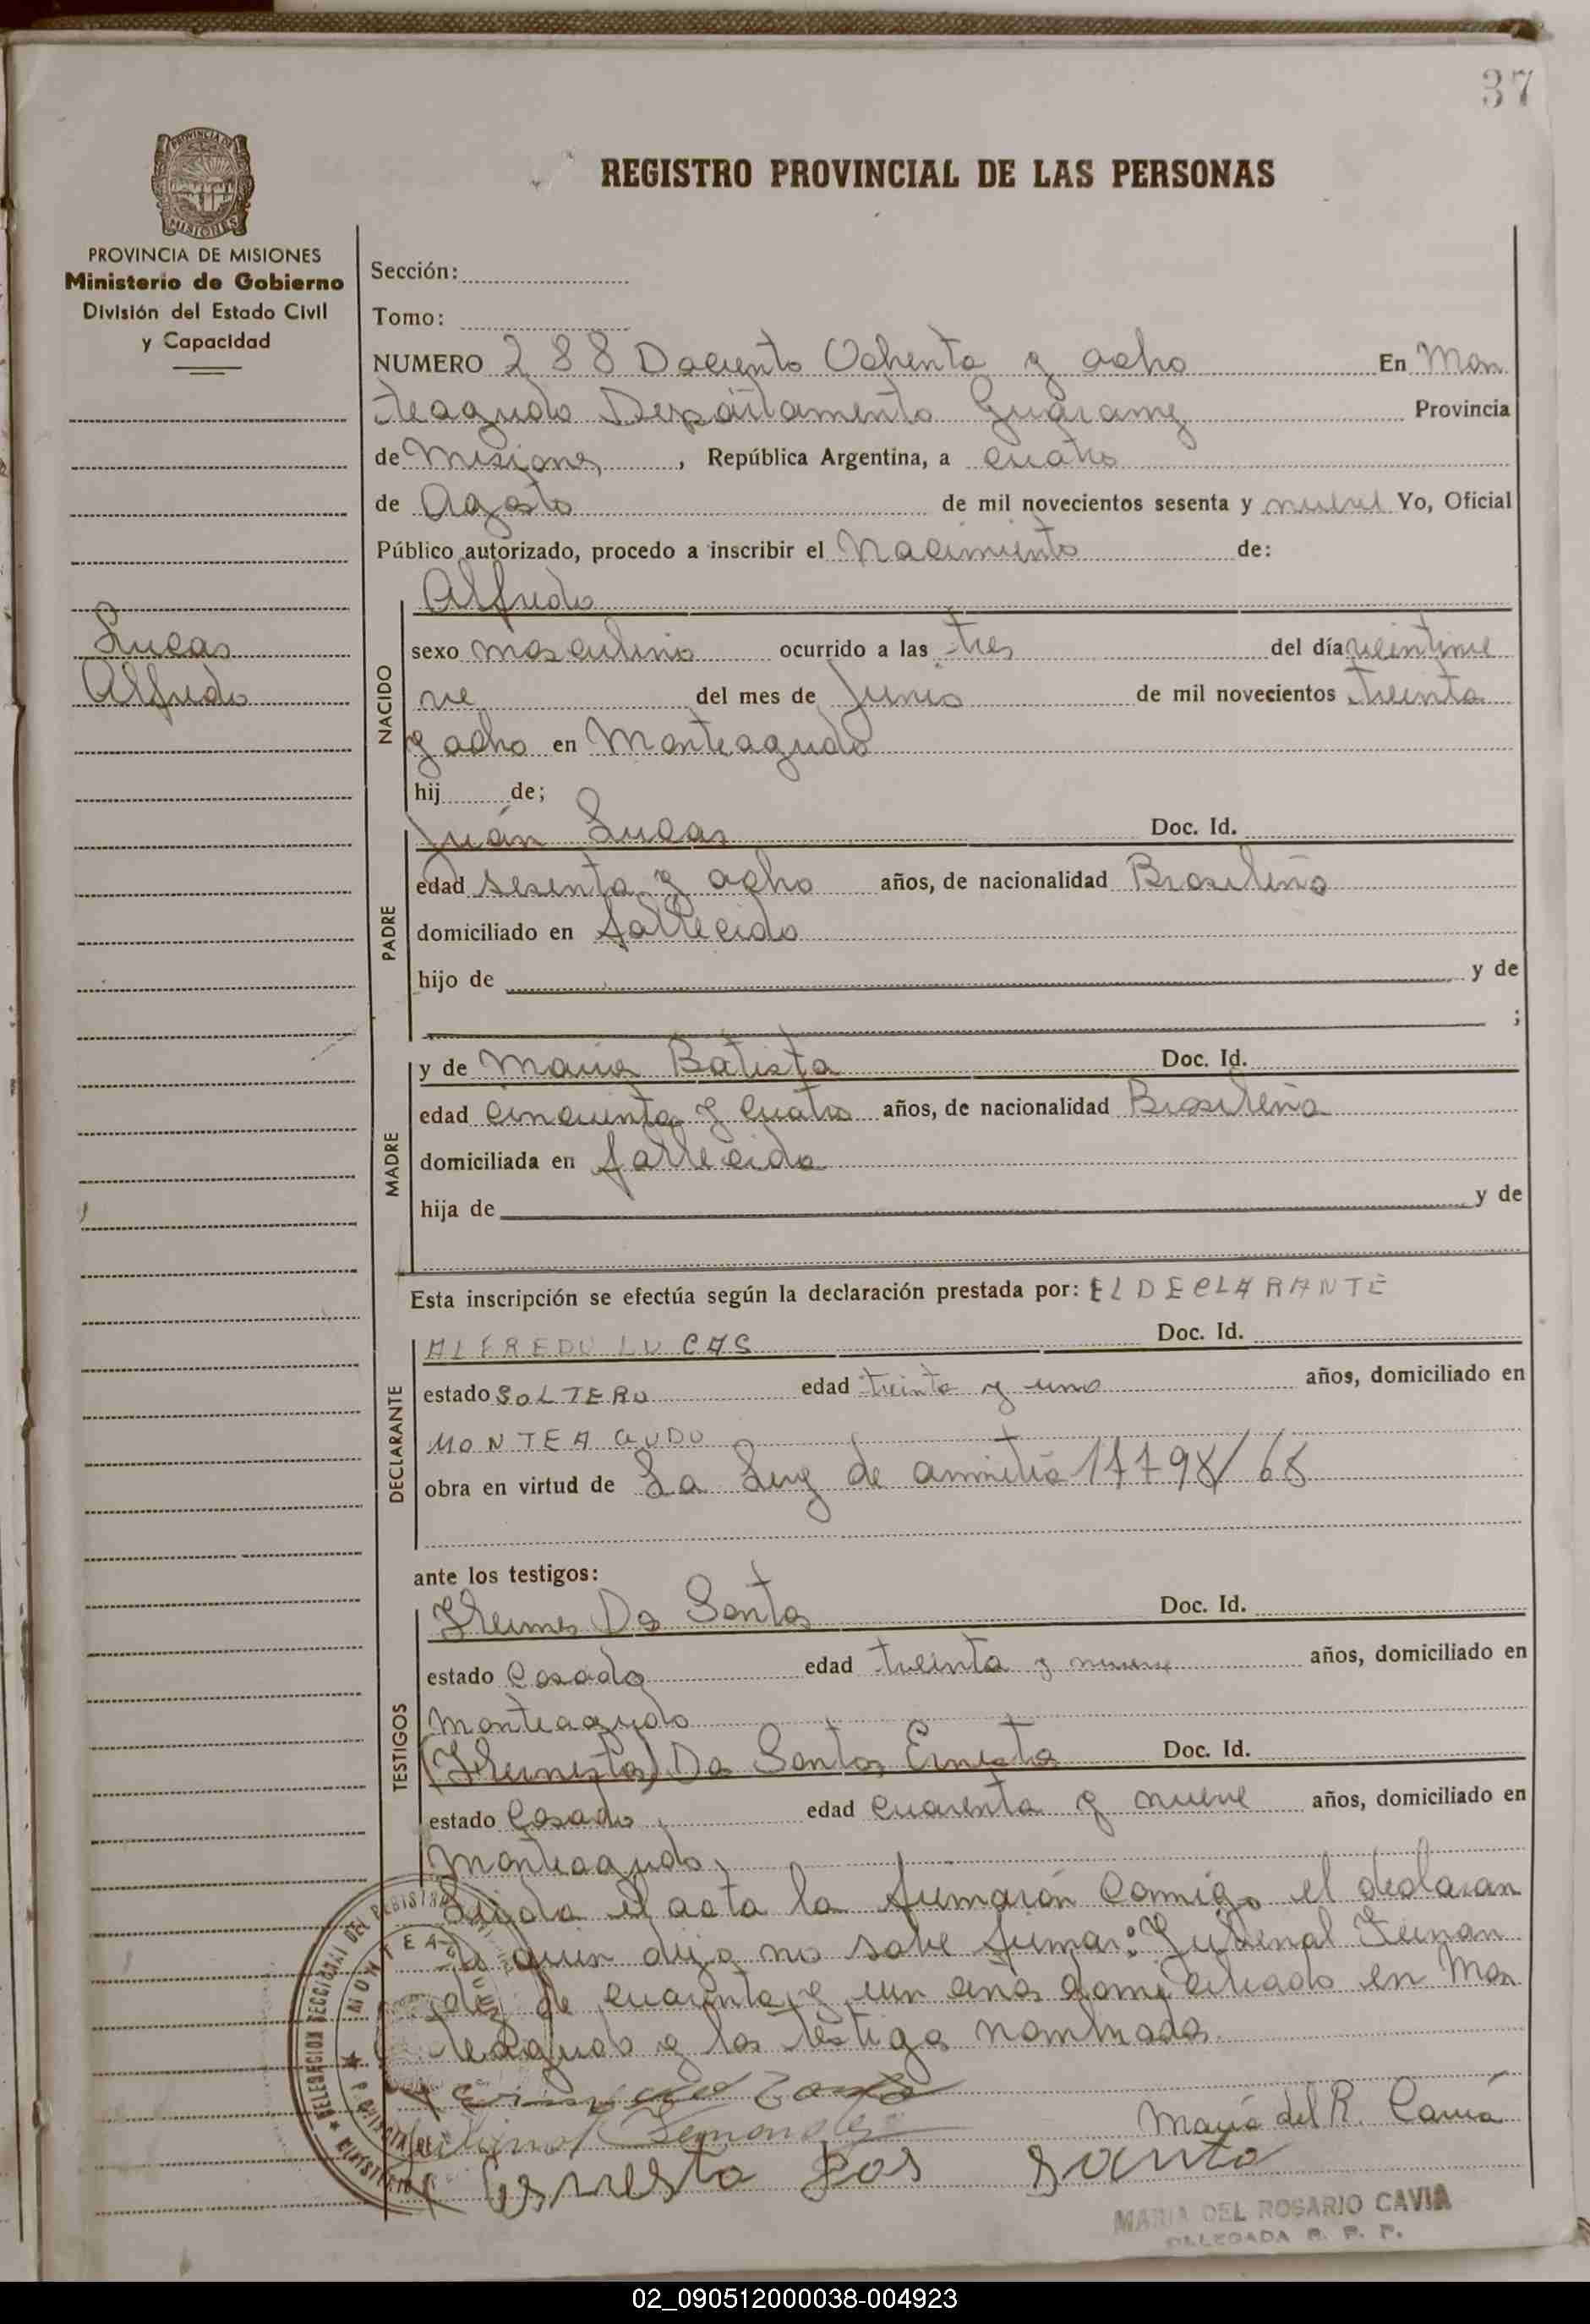 37
REGISTRO PROVINCIAL DE LAS PERSONAS
PROVINCIA DE MISIONES
Ministerio de Gobierno
División del Estado Civil
y Capacidad
Lucas
Alfredo
Sección:
Tomo:
NUMERO 288 Dociento Ochenta y ocho En Mon
teagudo Departamento Guarany Provincia
de Misiones, República Argentina, a cuatro
de Agosto de mil novecientos sesenta y nueve Yo, Oficial
Público autorizado, procedo a inscribir el Nacimiento de:
Alfredo
NACIDO
sexo masculino ocurrido a las tres del día veintinue
ve del mes de Junio de mil novecientos treinta
y ocho en Monteagudo
hij de;
PADRE
Juán Lucas Doc. Id.
edad sesenta y ocho años, de nacionalidad Brasileño
domiciliado en fallecido
hijo de y de
;
MADRE
y de Maria Batista Doc. Id.
edad cincuenta y cuatro años, de nacionalidad Brasileña
domiciliada en fallecida
hija de y de
Esta inscripción se efectúa según la declaración prestada por: EL DECLARANTE
DECLARANTE
ALFREDO LUCAS Doc. Id.
estado SOLTERO edad treinta y uno años, domiciliado en
MONTEAGUDO
obra en virtud de La Ley de 17798/68
ante los testigos:
TESTIGOS
Do Santos Doc. Id.
estado Casado edad treinta y nueve años, domiciliado en
Monteagudo
Do Santos Ernesto Doc. Id.
estado Casado edad cuarenta y nueve años, domiciliado en
Monteagudo.
Leida el acta la firmarón conmigo el declaran
te quien dijo no sabe firmar: Fernan
dez de cuarenta y un años domiciliado en Mon
teagudo y los testigos nombrados.
Maria del R. Cavia
Ernesto dos Santo
MARIA DEL ROSARIO CAVIA
DELEGADA R. P. P.
02_090512000038-004923